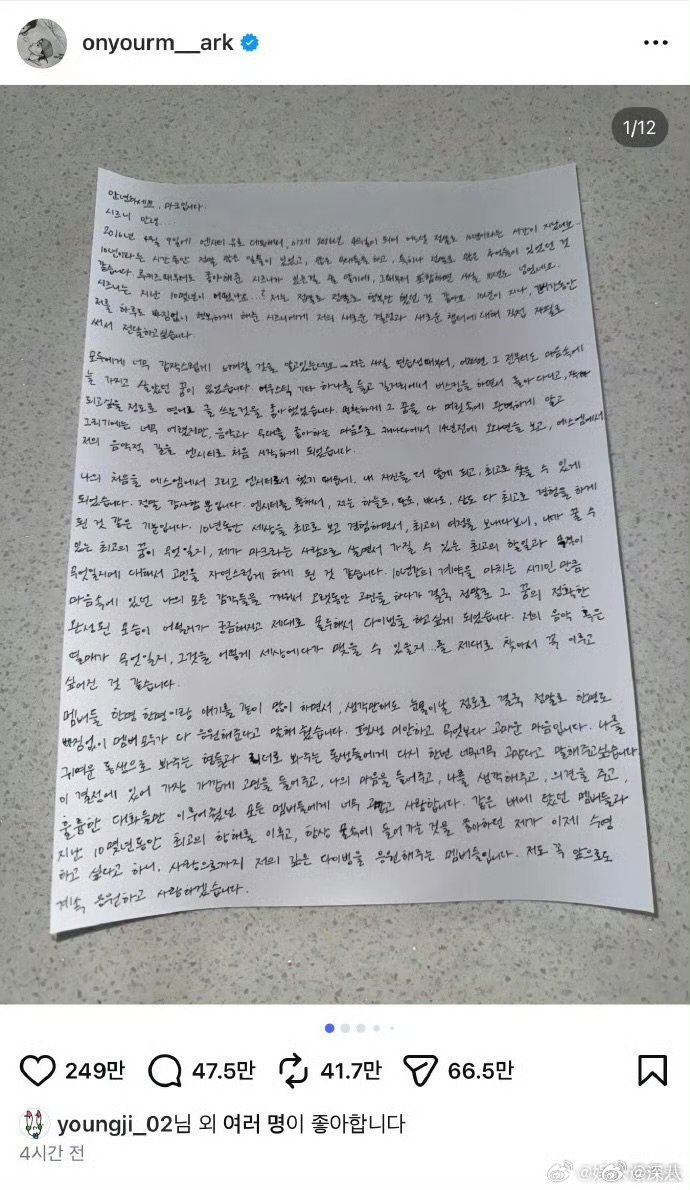 onyourm__ark
1/12
안녕하세요, 마크입니다.
시즈니 안녕...
2016년 4월 9일에 엔시티 유로 데뷔해서, 이제 2026년 4월이 되어 어느덧 정말로 10년이라는 시간이 지났네요..
10년이라는 시간동안 정말 많은 일들이 있었고, 많은 무대들을 하고, 특히나 정말로 많은 추억들이 있었던 것
같습니다. 루키즈 때부터도 좋아해준 시즈니가 있는걸 잘 알기에, 그때부터 포함하면 사실 10년도 넘었네요.
시즈니는 지난 10몇년이 어땠나요...? 저는 정말로 정말로 행복만 했던 것 같아요. 10년이 지나, 그동안
저를 하루도 빠짐없이 행복하게 해준 시즈니에게 저의 새로운 결심과 새로운 챕터에 대해 직접 자필로
써서 전달하고싶습니다.
모두에게 너무 갑작스럽게 느껴질 것을 알고있는데요.. 저는 사실 연습생때부터, 어쩌면 그 전부터도 마음속에
늘 가지고 살았던 꿈이 있었습니다. 어쿠스틱 기타 하나를 들고 길거리에서 버스킹을 하면서 돌아다니고, 작가
되고싶을 정도로 영어로 글 쓰는것을 좋아했었습니다. 막연하게 그 꿈을 다 머릿속에 완벽하게 알고
그리기에는 너무 어렸지만, 음악과 무대를 좋아하는 마음으로 캐나다에서 14년전에 오디션을 보고, 에스엠에서
저의 음악적 길을 엔시티로 처음 시작하게 되었습니다.
나의 처음을 에스엠에서 그리고 엔시티로서 했기 때문에, 내 자신을 더 알게 되고, 최고로 찾을 수 있게
되었습니다. 정말 감사할 뿐입니다. 엔시티를 통해서, 저는 하늘도, 땅도, 바다도, 산도 다 최고로 경험을 하게
된 것 같은 기분입니다. 10년동안 세상을 최고로 보고 경험하면서, 최고의 여정을 보내다보니, 내가 꿀 수
있는 최고의 꿈이 무엇일지, 제가 마크라는 사람으로 살면서 가질 수 있는 최고의 할일과 목적이
무엇일지에 대해서 고민을 자연스럽게 하게 된 것 같습니다. 10년간의 계약을 마치는 시기인 만큼
마음속에 있던 나의 모든 감각들을 깨워서 오랫동안 고민을 하다가 결국 정말로 그 꿈의 정확한
완성된 모습이 어떨런가 궁금해지고 제대로 몰두해서 다이빙을 하고싶게 되었습니다. 저의 음악 혹은
열매가 무엇일지, 그것을 어떻게 세상에다가 맺을 수 있을지..를 제대로 찾아서 꼭 이루고
싶어진 것 같습니다.
멤버들 한명 한명이랑 얘기를 같이 많이 하면서, 생각만해도 눈물이날 정도로 결국 정말로 한명도
빠짐없이 멤버 모두가 다 응원해준다고 말해 줬습니다. 평생 미안하고 무엇보다 고마운 마음입니다. 나를
귀여운 동생으로 봐주는 형들과 리더로 봐주는 동생들에게 다시 한번 너무너무 고맙다고 말해주고싶습니다
이 결정에 있어 가장 가깝게 고민을 들어주고, 나의 마음을 들어주고, 나를 생각해주고, 의견을 주고,
훌륭한 대화들만 이루어줬던 모든 멤버들에게 너무 고맙고 사랑합니다. 같은 배에 탔던 멤버들과
지난 10몇년동안 최고의 항해를 이루고, 항상 물속에 들어가는 것을 좋아하던 제가 이제 수영
하고 싶다고 하니. 사랑으로까지 저의 깊은 다이빙을 응원해주는 멤버들입니다. 저도 꼭 앞으로도
계속 응원하고 사랑하겠습니다.
249만 47.5만 41.7만 66.5만
youngji_02님 외 여러 명이 좋아합니다
4시간 전
@深人